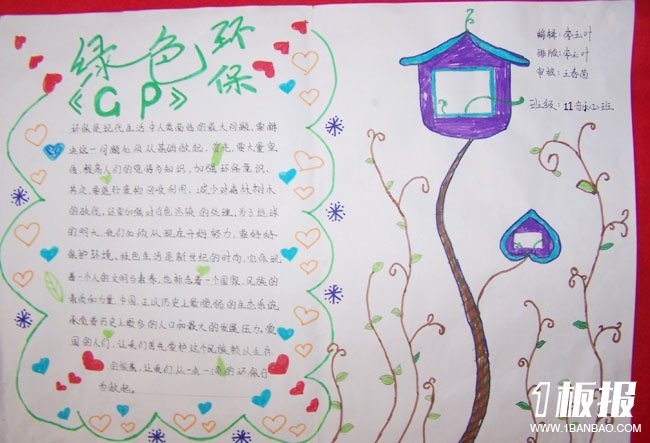 绿色环保
《GP》
编辑：
排版：
审核：
班级：11音乐(2)班
环保是现代生活中人类面临的最大问题，要解
决这一问题必须从基础做起，首先，要大量宣
传，提高人们的觉悟与知识，加强环保意识，
其次，要进行废物回收利用，减少对森林树木
的砍伐，还要加强对白色污染的处理，为了地球
的明天，我们必须从现在开始努力，要好好
保护环境。绿色生活是新世纪的时尚，它体现
着一个人的文明与素养，也标志着一个国家、民族的
素质和力量，中国，正以历史上最脆弱的生态系统，
承受着历史上最多的人口和最大的发展压力，爱
国的人们，让我们首先爱护这个民族赖以生存
的家园，让我们从一点一滴的环保自
为做起。
1板报
WWW.1BANBAO.COM